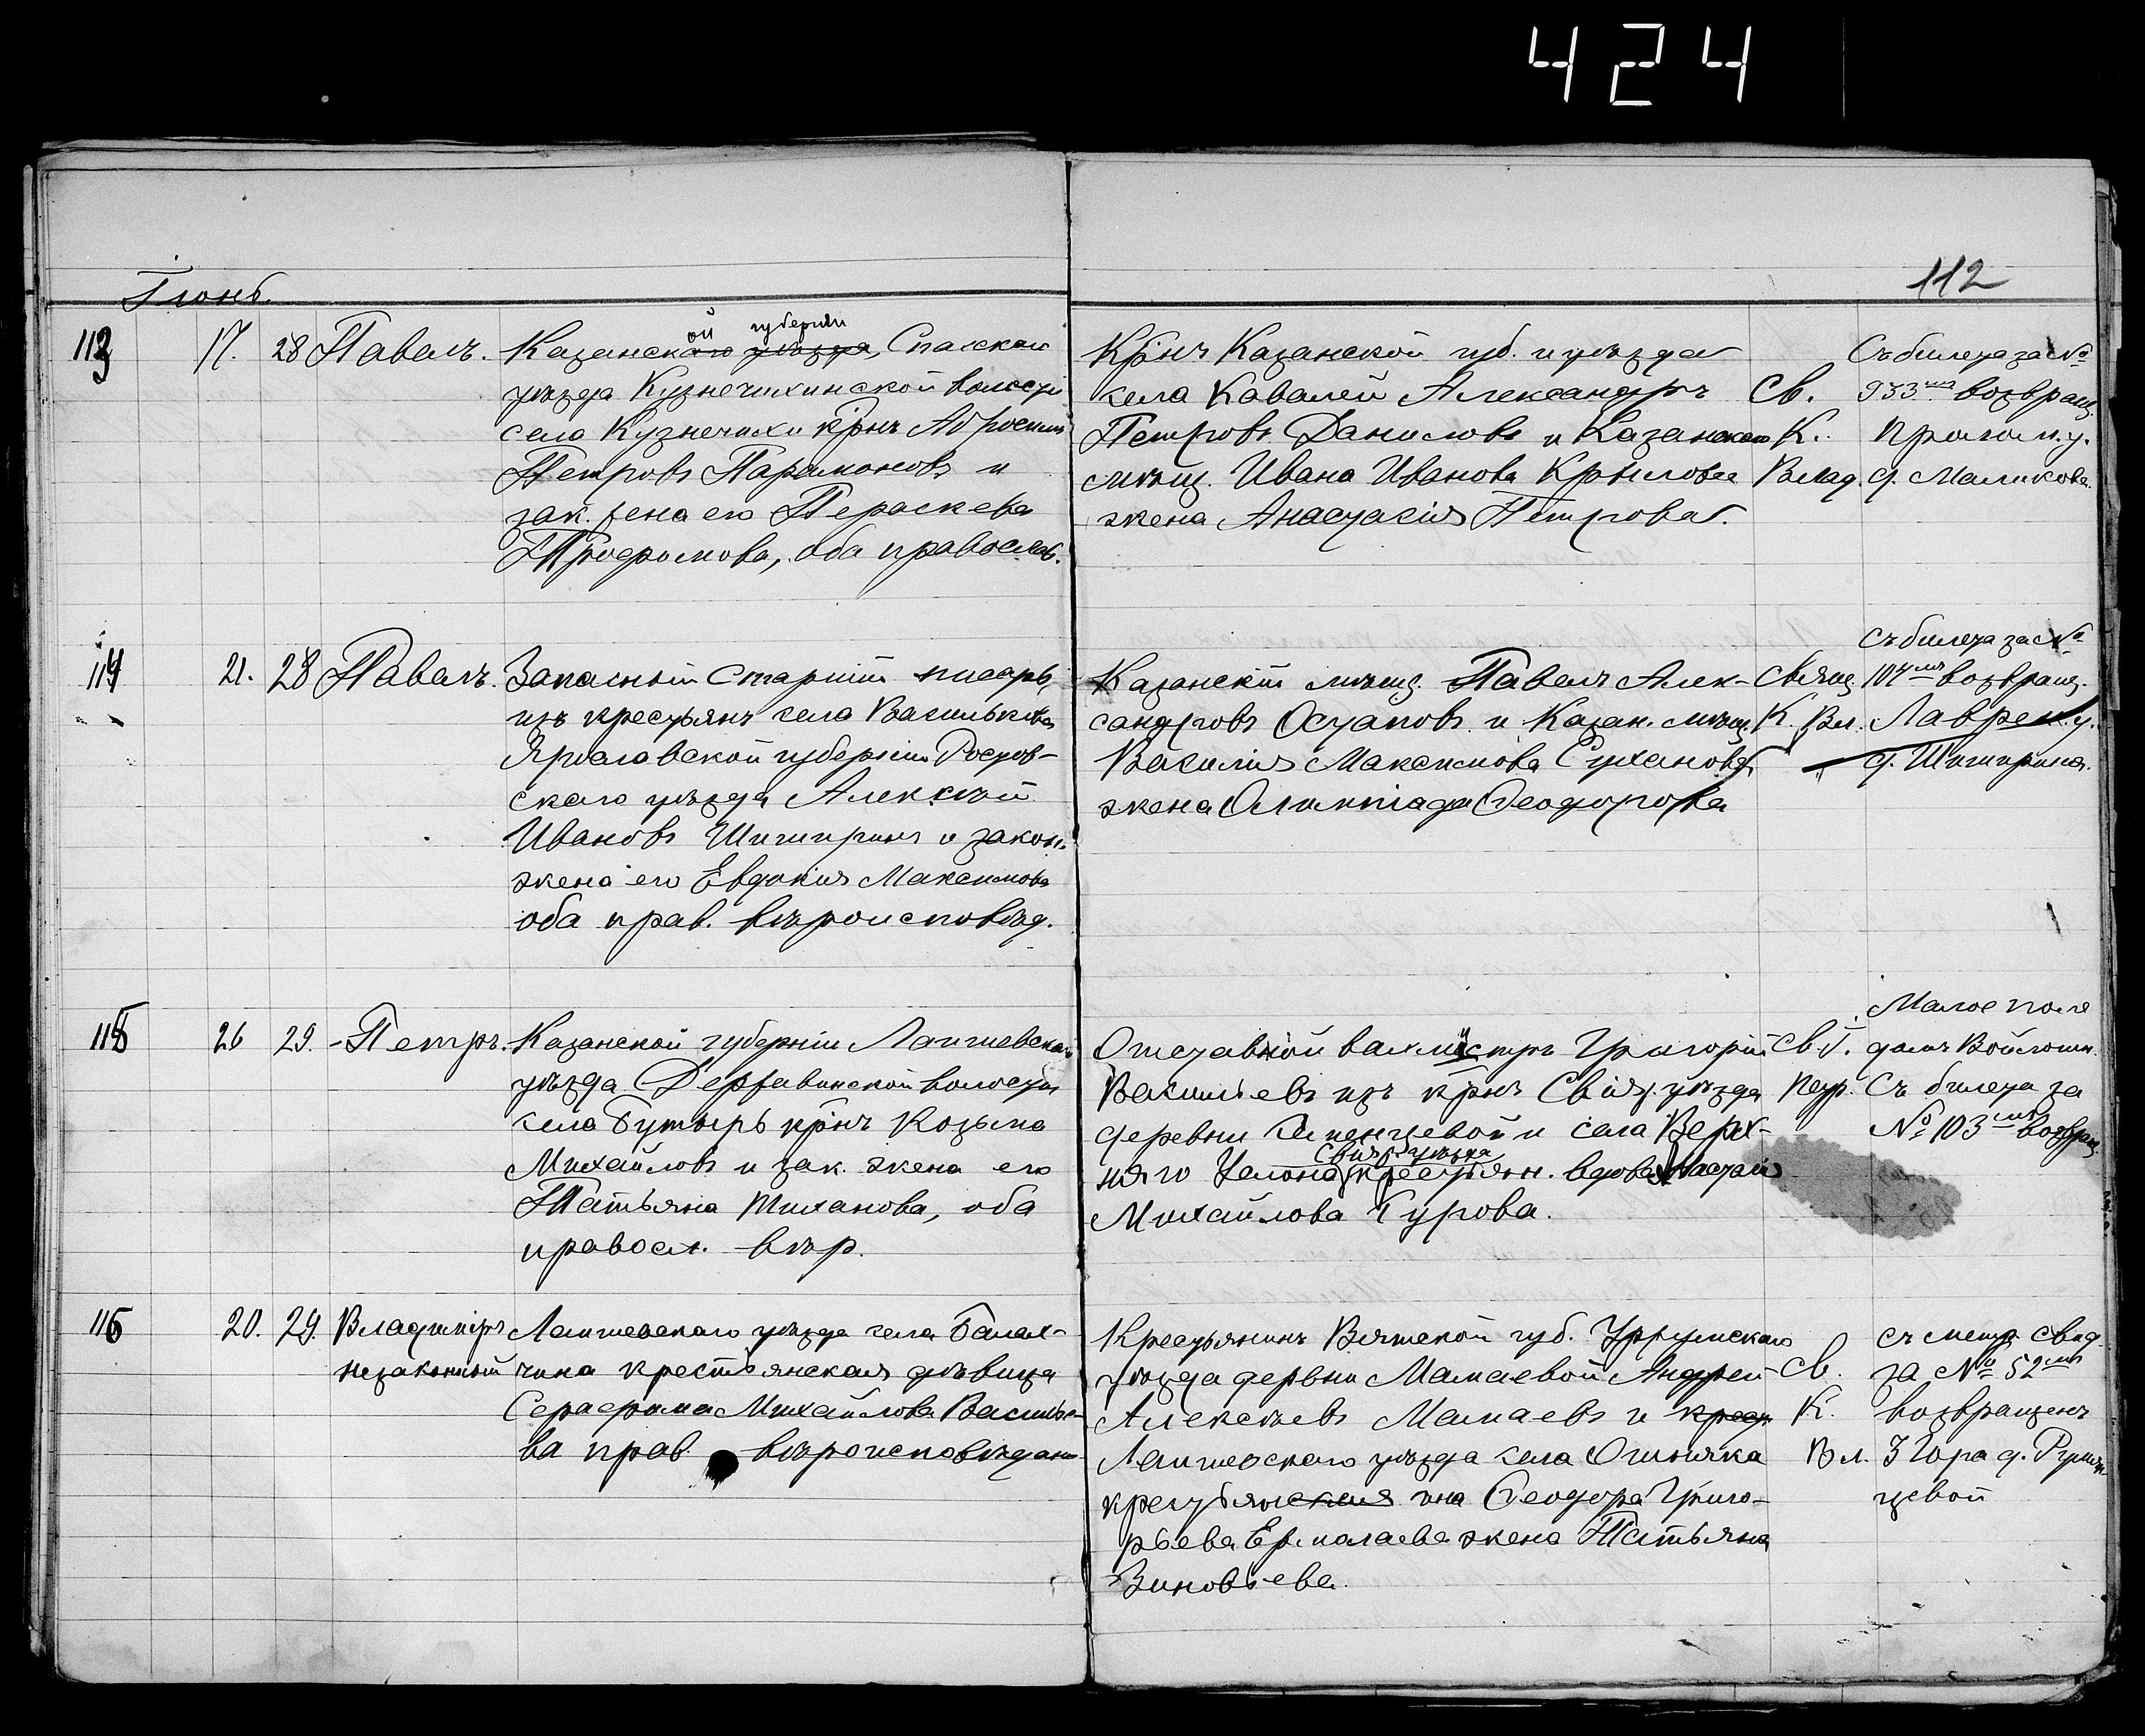 424
112
Іюнь.
113 17. 28 Павелъ. Казанской губерніи Спаскаго
уѣзда Кузнечихинской волости
села Кузнечихи крнъ Абросимъ
Петровъ Парамоновъ и
зак. жена его Параскева
Трофимова, оба православ.
Крнъ Казанской губ. и уѣзда
села Кавалей Александръ
Петровъ Даниловъ и Казанскаго
мѣщ. Ивана Иванова Крылова
жена Анастасія Петрова.
Св.
К.
Влад.
Съ билета за №
933мъ возвращ.
Пролом. у.
д. Маликова.
114 21. 28 Павелъ. Запасный Старшій писарь,
изъ крестьянъ села Василькова
Ярославской губерніи Ростов-
скаго уѣзда Алексѣй
Ивановъ Шиширинъ и закон.
жена его Евдокія Максимова
оба прав. вѣроисповѣд.
Казанскій мѣщ. Павелъ Алек-
сандровъ Остаповъ и Казан. мѣщ.
Василія Максимова Суханова
жена Олимпіада Ѳеодорова
Свящ.
К. Вл.
Съ билета за №
104мъ возвращ.
Лаврен. у.
д. Шишрина.
115 26 29. Петръ. Казанской губерніи Лаишевскаго
уѣзда Державинской волости
села Бутырь крнъ Козьма
Михайловъ и зак. жена его
Татьяна Тиханова, оба
правосл. вѣр.
Отставной вахмистръ Григорій
Васильевъ изъ крнъ Свіяж. уѣзда
деревни и села Верх-
няго Услона Свіяж. уѣзда крестьян. вдова Анастасія
Михайлова Гурова.
Св. І.
Петр.
Малое поле
домъ Войлошн.
Съ билета за
№ 103мъ возвращ.
116 20. 29. Владиміръ Лаишевскаго уѣзда села Балах-
незаконный чина крестьянская дѣвица
Серафима Михайлова Василье-
ва прав. вѣроисповѣдан.
Крестьянинъ Вятской губ. Уржумскаго
уѣзда дервни Мамаевой Андрей
Алексѣевъ Мамаевъ и крест.
Лаишевскаго уѣзда села Ошняка
крестьянина Ѳеодора Григо-
рьева Ермолаева жена Татьяна
Зиновьева.
Св.
К.
Вл.
съ метр. свид.
за № 52мъ
возвращенъ
3 Гора д. Румян-
цевой